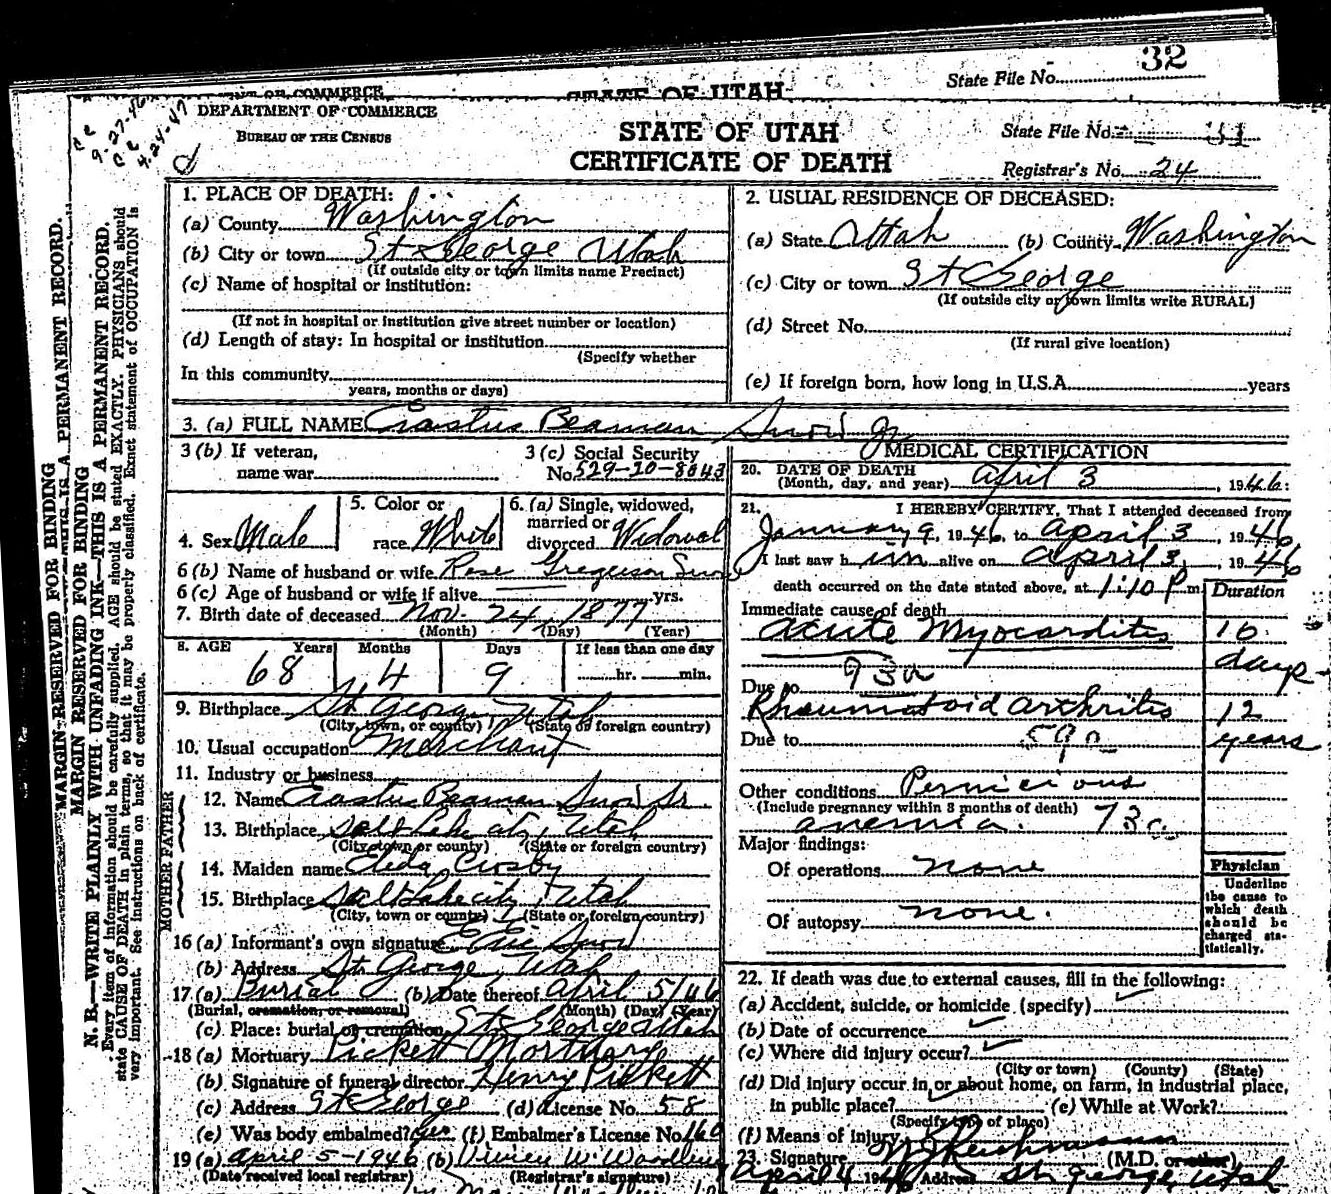 32
State File No.
STATE OF UTAH
DEPARTMENT OF COMMERCE
BUREAU OF THE CENSUS
9-27-46
4-24-47
STATE OF UTAH
CERTIFICATE OF DEATH
State File No.
Registrar's No. 24
MARGIN RESERVED FOR BINDING
MARGIN RESERVED FOR BINDING
N. B.—WRITE PLAINLY WITH UNFADING INK—THIS IS A PERMANENT RECORD.
Every item of information should be carefully supplied. AGE should be stated EXACTLY. PHYSICIANS should
state CAUSE OF DEATH in plain terms, so that it may be properly classified. Exact statement of OCCUPATION is
very important. See instructions on back of certificate.
1. PLACE OF DEATH:
(a) County Washington
(b) City or town St George Utah
(If outside city or town limits name Precinct)
(c) Name of hospital or institution:
(If not in hospital or institution give street number or location)
(d) Length of stay: In hospital or institution
(Specify whether
In this community
years, months or days)
2. USUAL RESIDENCE OF DECEASED:
(a) State Utah (b) County Washington
(c) City or town St George
(If outside city or town limits write RURAL)
(d) Street No.
(If rural give location)
(e) If foreign born, how long in U.S.A. years
3. (a) FULL NAME Erastus Beaman Snow Jr
3 (b) If veteran,
name war
3 (c) Social Security
No. 529-20-8043
4. Sex Male
5. Color or
race White
6. (a) Single, widowed,
married or
divorced Widowed
6 (b) Name of husband or wife Rose Gregerson Snow
6 (c) Age of husband or wife if alive yrs.
7. Birth date of deceased Nov. 24, 1877
(Month) (Day) (Year)
8. AGE Years Months Days If less than one day
68 4 9 hr. min.
9. Birthplace St. George, Utah
(City, town, or county) (State or foreign country)
10. Usual occupation merchant
11. Industry or business
FATHER
12. Name Erastus Beaman Snow Sr.
13. Birthplace Salt Lake city, Utah
(City, town or county) (State or foreign country)
MOTHER
14. Maiden name Crosby
15. Birthplace Salt Lake city, Utah
(City, town or county) (State or foreign country)
16 (a) Informant's own signature Snow
(b) Address St. George, Utah
17 (a) Burial (b) Date thereof April 5/46
(Burial, cremation, or removal) (Month) (Day) (Year)
(c) Place: burial or cremation St. George Utah
18 (a) Mortuary Pickett Mortuary
(b) Signature of funeral director Henry Pickett
(c) Address St George (d) License No. 58
(e) Was body embalmed? yes (f) Embalmer's License No. 160
19 (a) April 5-1946 (b) Vivien W.
(Date received local registrar) (Registrar's signature)
MEDICAL CERTIFICATION
20. DATE OF DEATH
(Month, day, and year) April 3, 1946:
21. I HEREBY CERTIFY, That I attended deceased from
January 9, 1946, to April 3, 1946,
I last saw him alive on April 3, 1946
death occurred on the date stated above, at 1:10 P m
Duration
Immediate cause of death
acute Myocarditis 10
days
93a
Due to
Rheumatoid arthritis 12
years
Due to 59a
Other conditions Pernicious
(Include pregnancy within 3 months of death)
anemia. 73a
Major findings:
Of operations none
Of autopsy none.
Physician
Underline
the cause to
which death
should be
charged sta-
tistically.
22. If death was due to external causes, fill in the following:
(a) Accident, suicide, or homicide (specify)
(b) Date of occurrence
(c) Where did injury occur?
(City or town) (County) (State)
(d) Did injury occur in or about home, on farm, in industrial place,
in public place? (e) While at Work?
(Specify type of place)
(f) Means of injury
23. Signature (M.D. or other)
April 4 1946 Address St George, Utah